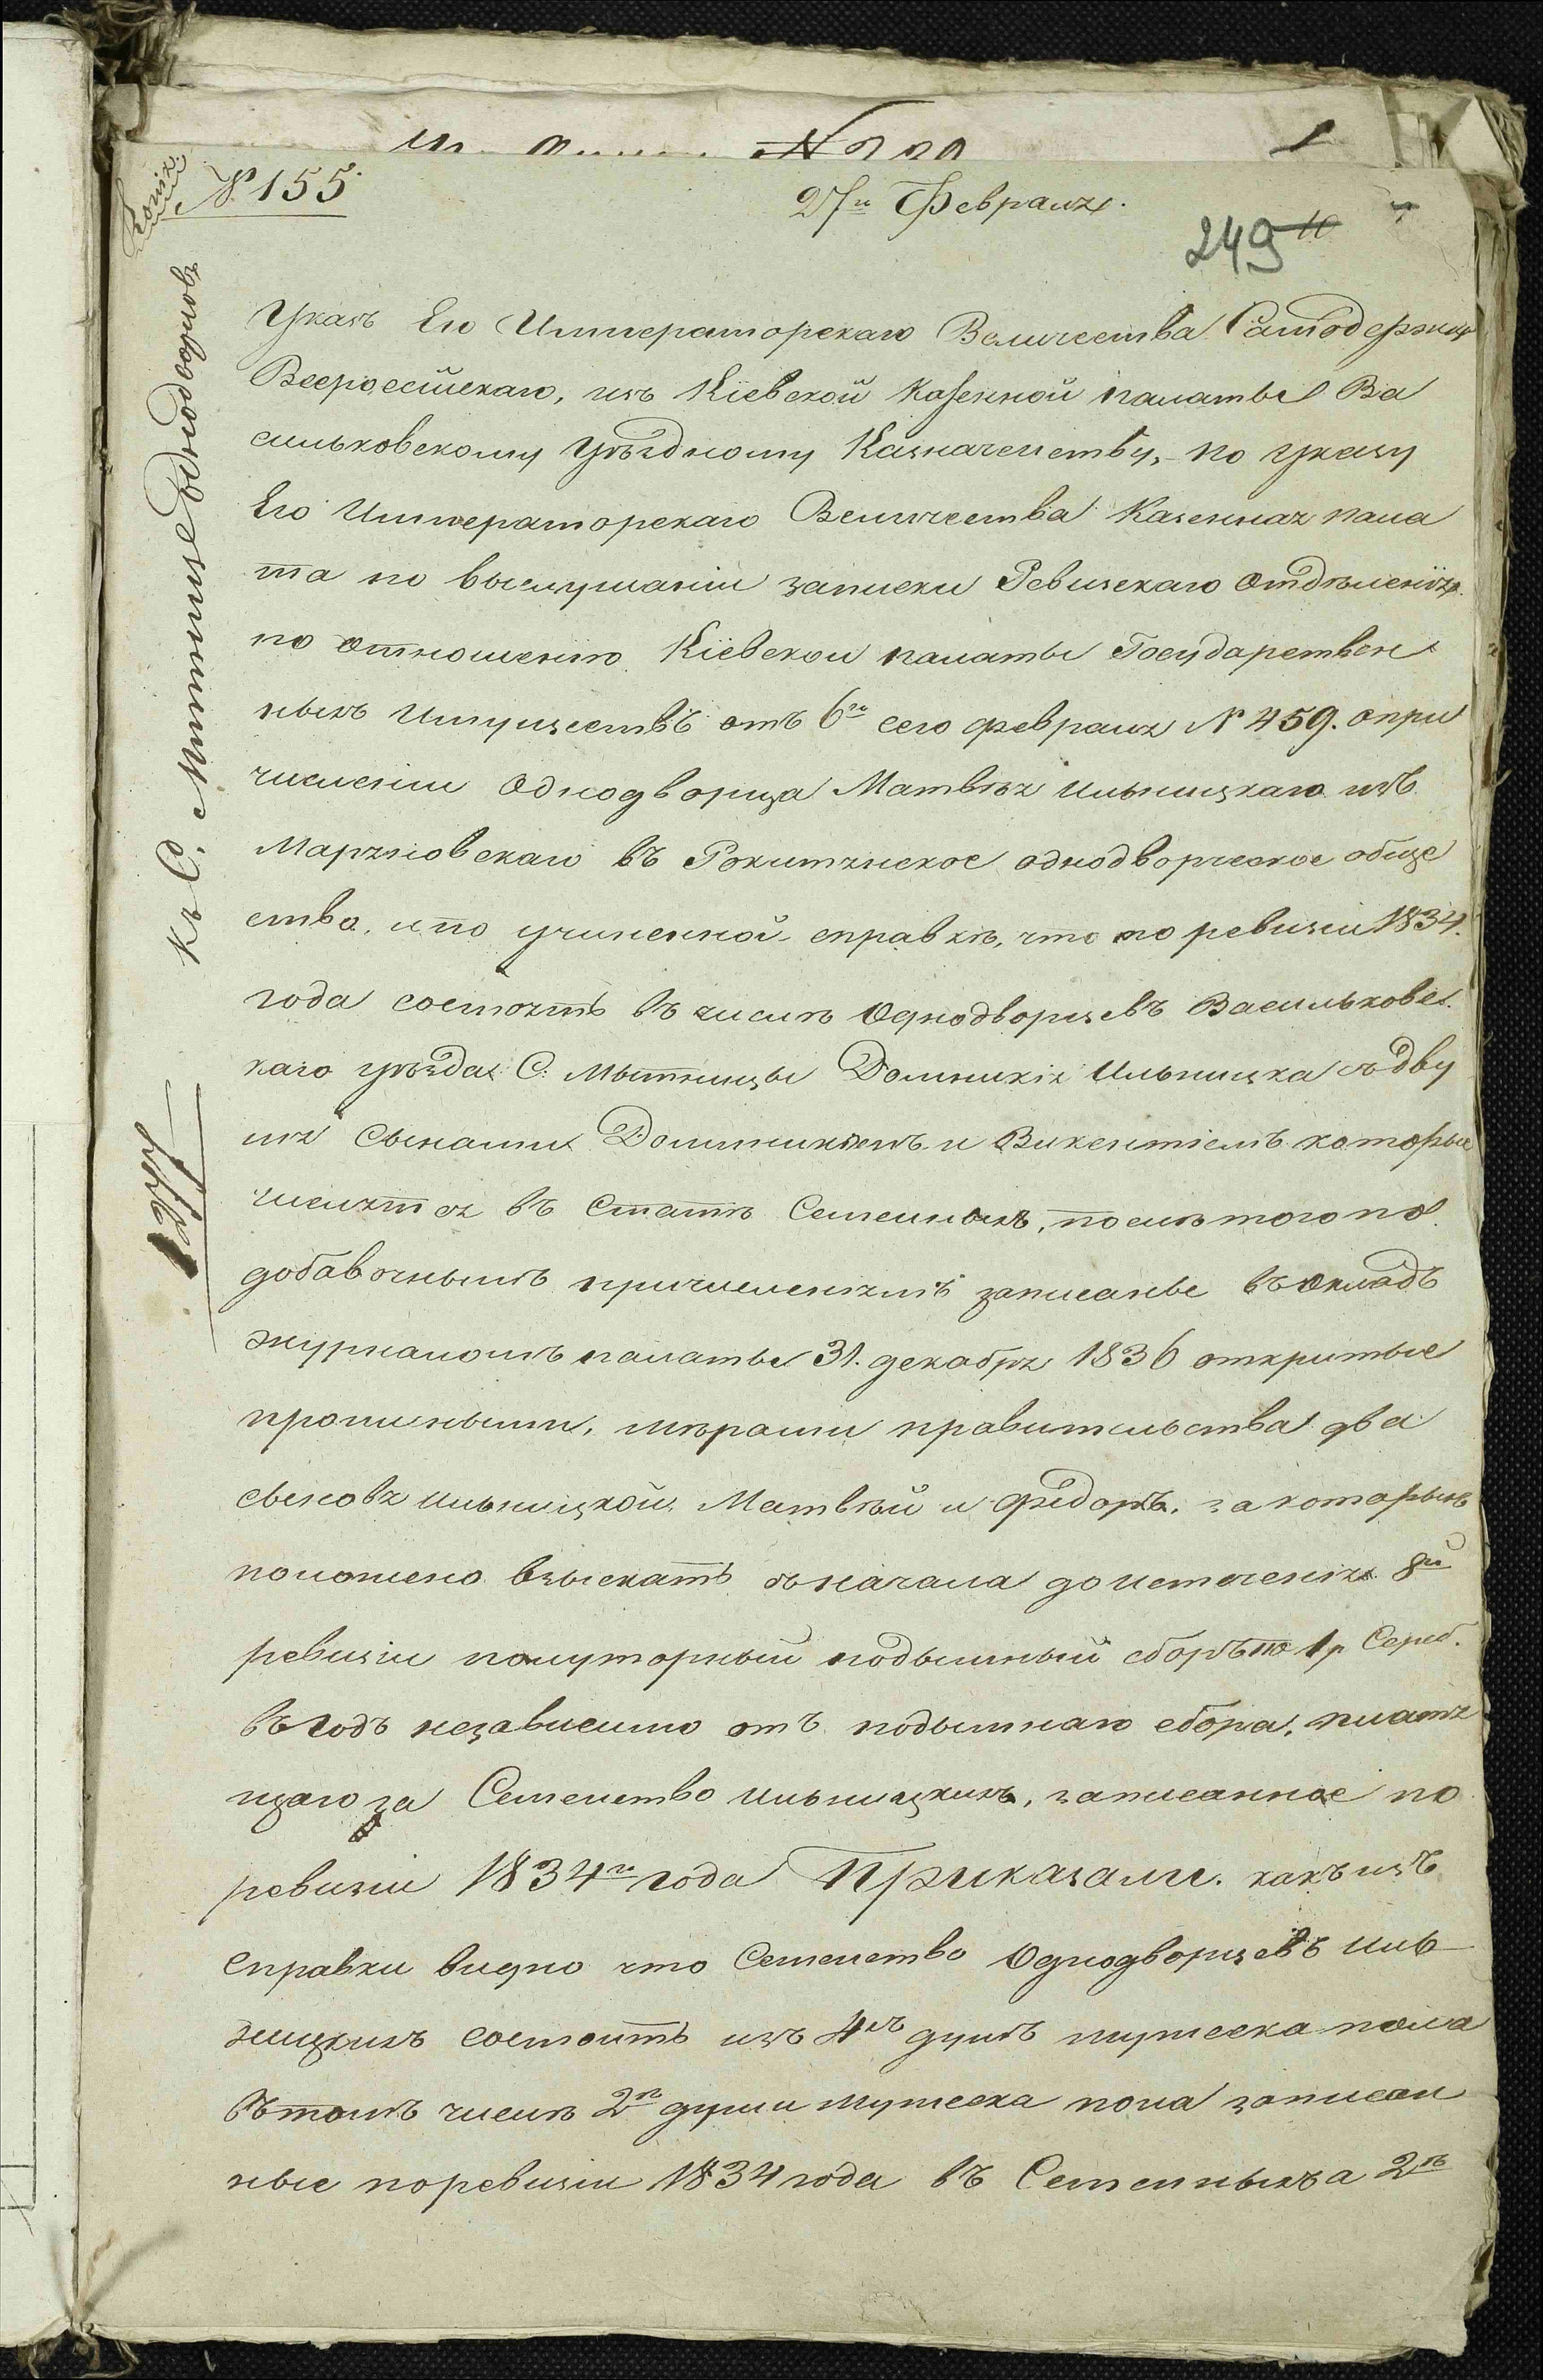 Копія
№ 155
27го Февраля.
249
Къ С. Мытнице Однодворцовъ
Указъ Его Императорскаго Величества Самодержца
Всероссійскаго, изъ Кіевской Казенной палаты Ва
сильковскому Уѣздному Казначейству, по указу
Его Императорскаго Величества Казенная пала
та по выслушаніи записки Ревизскаго Отдѣленія
по отношенію Кіевской палаты Государствен
ныхъ Имуществъ отъ 6го сего февраля № 459. опри
численіи Однодворца Матвѣя Ильницкаго изъ
Марьяновскаго въ Рокитянское однодворческое обще
ство, и по учиненной справкѣ, что по ревизіи 1834.
года состоятъ въ числѣ Однодворцевъ Васильковс
каго уѣзда С: Мытницы Доминикія Ильницка съ дву
мя Сынами Доминикіемъ и Викентіемъ которые
числятся въ Статѣ Семейныхъ, послѣ того по
добавочнымъ причисленіямъ записаные въ Окладъ
журналомъ палаты 31. декабря 1836 открытые
прописными, мѣрами правительства два
сыновя ильницкой. Матвѣй и Фѣдоръ, за которыхъ
положено взыскать съ начала до истеченія 8й
ревизіи полуторный подымный сборъ по 1 р Сереб.
въ годъ независимо отъ подымнаго сбора, платя
щаго за Семейство ильницкихъ, записанное по
ревизіи 1834го года Приказали. какъ изъ
Справки видно что Семейство Однодворцевъ Иль
ницкихъ состоитъ изъ 4хъ душъ мужеска пола
въ томъ числѣ 2ѣ души мужеска пола записан
ные по ревизіи 1834 года въ Семейныхъ а 2ѣ